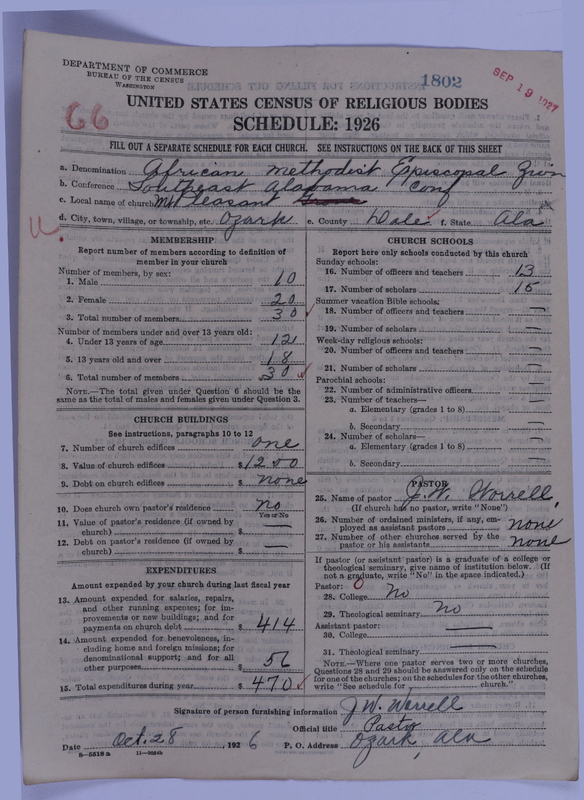 DEPARTMENT OF COMMERCE
BUREAU OF THE CENSUS
WASHINGTON
1802
SEP 19 1927
66
UNITED STATES CENSUS OF RELIGIOUS BODIES
SCHEDULE: 1926
FILL OUT A SEPARATE SCHEDULE FOR EACH CHURCH. SEE INSTRUCTIONS ON THE BACK OF THIS SHEET
a. Denomination African Methodist Episcopal Zion
b. Conference Southeast Alabama Conf
c. Local name of church Mt Pleasant
d. City, town, village, or township, etc. Ozark e. County Dale f. State Ala
MEMBERSHIP
Report number of members according to definition of
member in your church
Number of members, by sex:
1. Male 10
2. Female 20
3. Total number of members 30
Number of members under and over 13 years old:
4. Under 13 years of age 12
5. 13 years old and over 18
6. Total number of members 30
NOTE.—The total given under Question 6 should be the
same as the total of males and females given under Question 3.
CHURCH BUILDINGS
See instructions, paragraphs 10 to 12
7. Number of church edifices one
8. Value of church edifices $1250
9. Debt on church edifices $ none
10. Does church own pastor's residence no
Yes or No
11. Value of pastor's residence (if owned by
church) $ —
12. Debt on pastor's residence (if owned by
church) $ —
EXPENDITURES
Amount expended by your church during last fiscal year
13. Amount expended for salaries, repairs,
and other running expenses; for im-
provements or new buildings; and for
payments on church debt $ 414
14. Amount expended for benevolences, in-
cluding home and foreign missions; for
denominational support; and for all
other purposes $ 56
15. Total expenditures during year $ 470
CHURCH SCHOOLS
Report here only schools conducted by this church
Sunday schools:
16. Number of officers and teachers 13
17. Number of scholars 15
Summer vacation Bible schools:
18. Number of officers and teachers —
19. Number of scholars —
Week-day religious schools:
20. Number of officers and teachers —
21. Number of scholars —
Parochial schools:
22. Number of administrative officers —
23. Number of teachers—
a. Elementary (grades 1 to 8) —
b. Secondary —
24. Number of scholars—
a. Elementary (grades 1 to 8) —
b. Secondary —
PASTOR
25. Name of pastor J. W. Worrell
(If church has no pastor, write "None")
26. Number of ordained ministers, if any, em-
ployed as assistant pastors none
27. Number of other churches served by the
pastor or his assistants none
If pastor (or assistant pastor) is a graduate of a college or
theological seminary, give name of institution below. (If
not a graduate, write "No" in the space indicated.)
Pastor: 0
28. College No
29. Theological seminary No
Assistant pastor:
30. College —
31. Theological seminary —
NOTE.—Where one pastor serves two or more churches,
Questions 28 and 29 should be answered only on the schedule
for one of the churches; on the schedules for the other churches,
write "See schedule for church."
Signature of person furnishing information J. W. Worrell
Official title Pastor
Date Oct. 28, 1926 P. O. Address Ozark, Ala